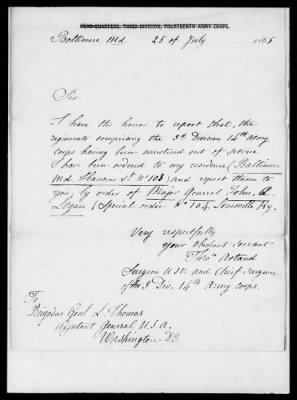 HEAD-QUARTERS, THIRD DIVISION, FOURTEENTH ARMY CORPS.
Baltimore Md 25 of July 1865
Sir
I have the honor to report that, the
regiments comprising the 3d Division 14th Army
Corps having been mustered out of service
I have been ordered to my residence (Baltimore
Md. Hanover St. No 108) and report them to
you, by order of Major General John. A.
Logan (Special order No 104, Louisville Ky.
Very respectfully
your Obedient Servant
Thos Artaud
Surgeon U.S.V. and Chief Surgeon
of the 3 Div. 14th Army Corps.
To
Brigadier Genl L. Thomas
Adjutant General U.S.A.
Washington D.C.